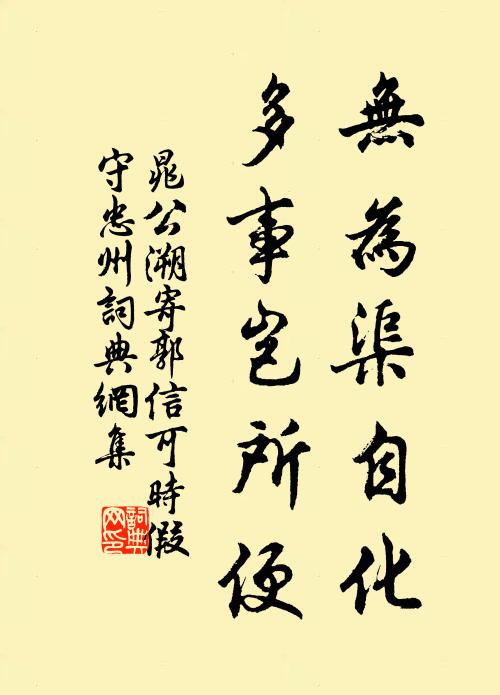 無為渠自化
多事豈所便
晁公溯寄郭信可時假
守忠州詞典網集
詞典网印